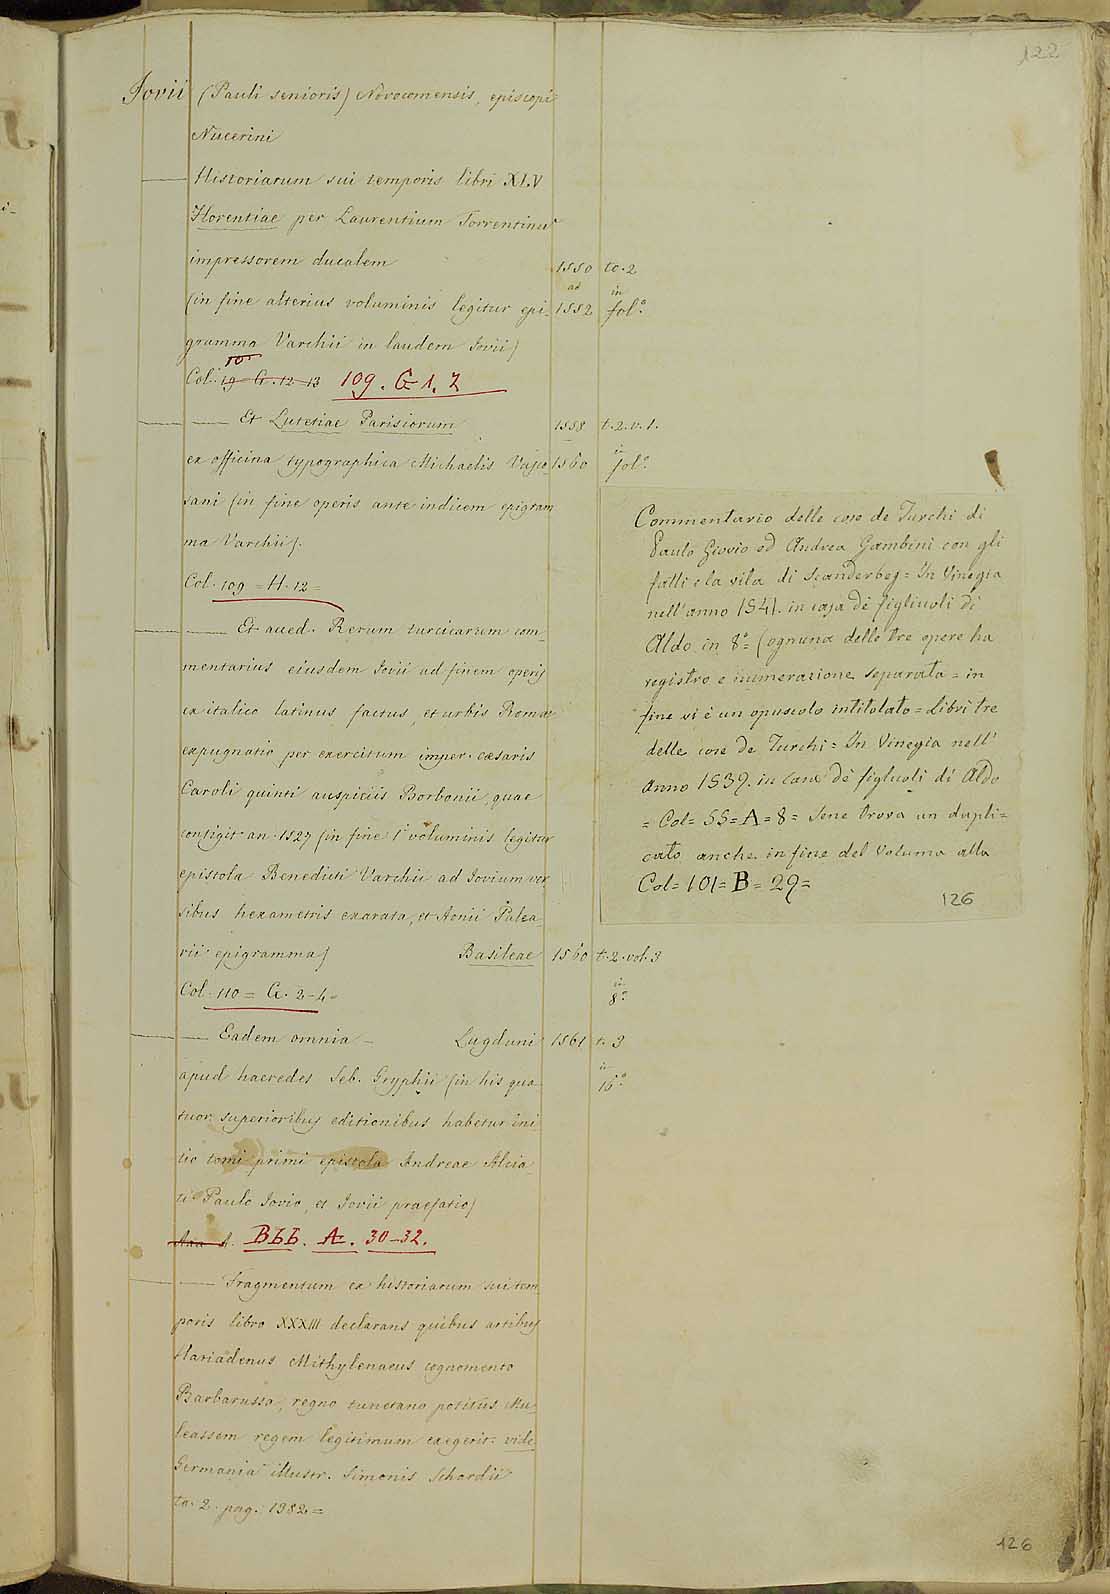 122
Jovii (Pauli senioris) Novocomensis, episcopi
Nucerini
Historiarum sui temporis libri XLV
Florentiae per Laurentium Torrentinu
impressorem ducalem 1550 to. 2
ad in
(in fine alterius voluminis legitur epi- 1552 fol.º
gramma Varchii in laudem Jovii)
Col. 19 G. 12 13 109. G 1. 2
Et Lutetiae Parisiorum 1558 t. 2. v. 1.
in
ex officina typographica Michaelis Vasco 1560 fol.º
sani (in fine operis ante indicem epigram
ma Varchii).
Col. 109 = H. 12 =
Et aued. Rerum turcicarum com-
mentarius eiusdem Jovii ad finem operis
ex italico latinus factus, et urbis Romae
expugnatio per exercitum imper. caesaris
Caroli quinti auspiciis Borbonii, quae
contigit an. 1527 (in fine 1i voluminis legitur
epistola Benedicti Varchii ad Jovium ver
sibus hexametris exarata, et Aonii Palea-
rii epigramma) Basileae 1560 t. 2. vol. 3
in
Col. 110 = G. 2-4 = 8º
Eadem omnia - Lugduni 1561 t. 3
in
apud haeredes Seb. Gryphii (in his qua- 16º
tuor superioribus editionibus habetur ini
tio tomi primi epistola Andreae Alcia
ti Paulo Jovio, et Jovii praefatio)
A. Bbb. A. 30-32.
Fragmentum ex historiarum sui tem
poris libro XXXIII declarans quibus artibus
Hariadenus Mithylenaeus cognomento
Barbarussa, regno tunetano potitus Mu-
leassem regem legitimum exegerit. vide
Germania illustr. Simonis Schardii
to. 2. pag. 1382 =
Commentario delle cose de Turchi di
Paulo Giovio ed Andrea Gambini con gli
fatti e la vita di Scanderbeg = In Vinegia
nell'anno 1541. in casa de figliuoli di
Aldo in 8º = (ognuna delle tre opere ha
registro e numerazione separata = in
fine vi è un opuscolo intitolato = Libri tre
delle cose de Turchi = In Vinegia nell'
Anno 1539. in casa de figliuoli di Aldo
= Col = 55 = A = 8 = Sene trova un dupli=
cato anche in fine del Volume alla
Col = 101 = B = 29 =
126
126